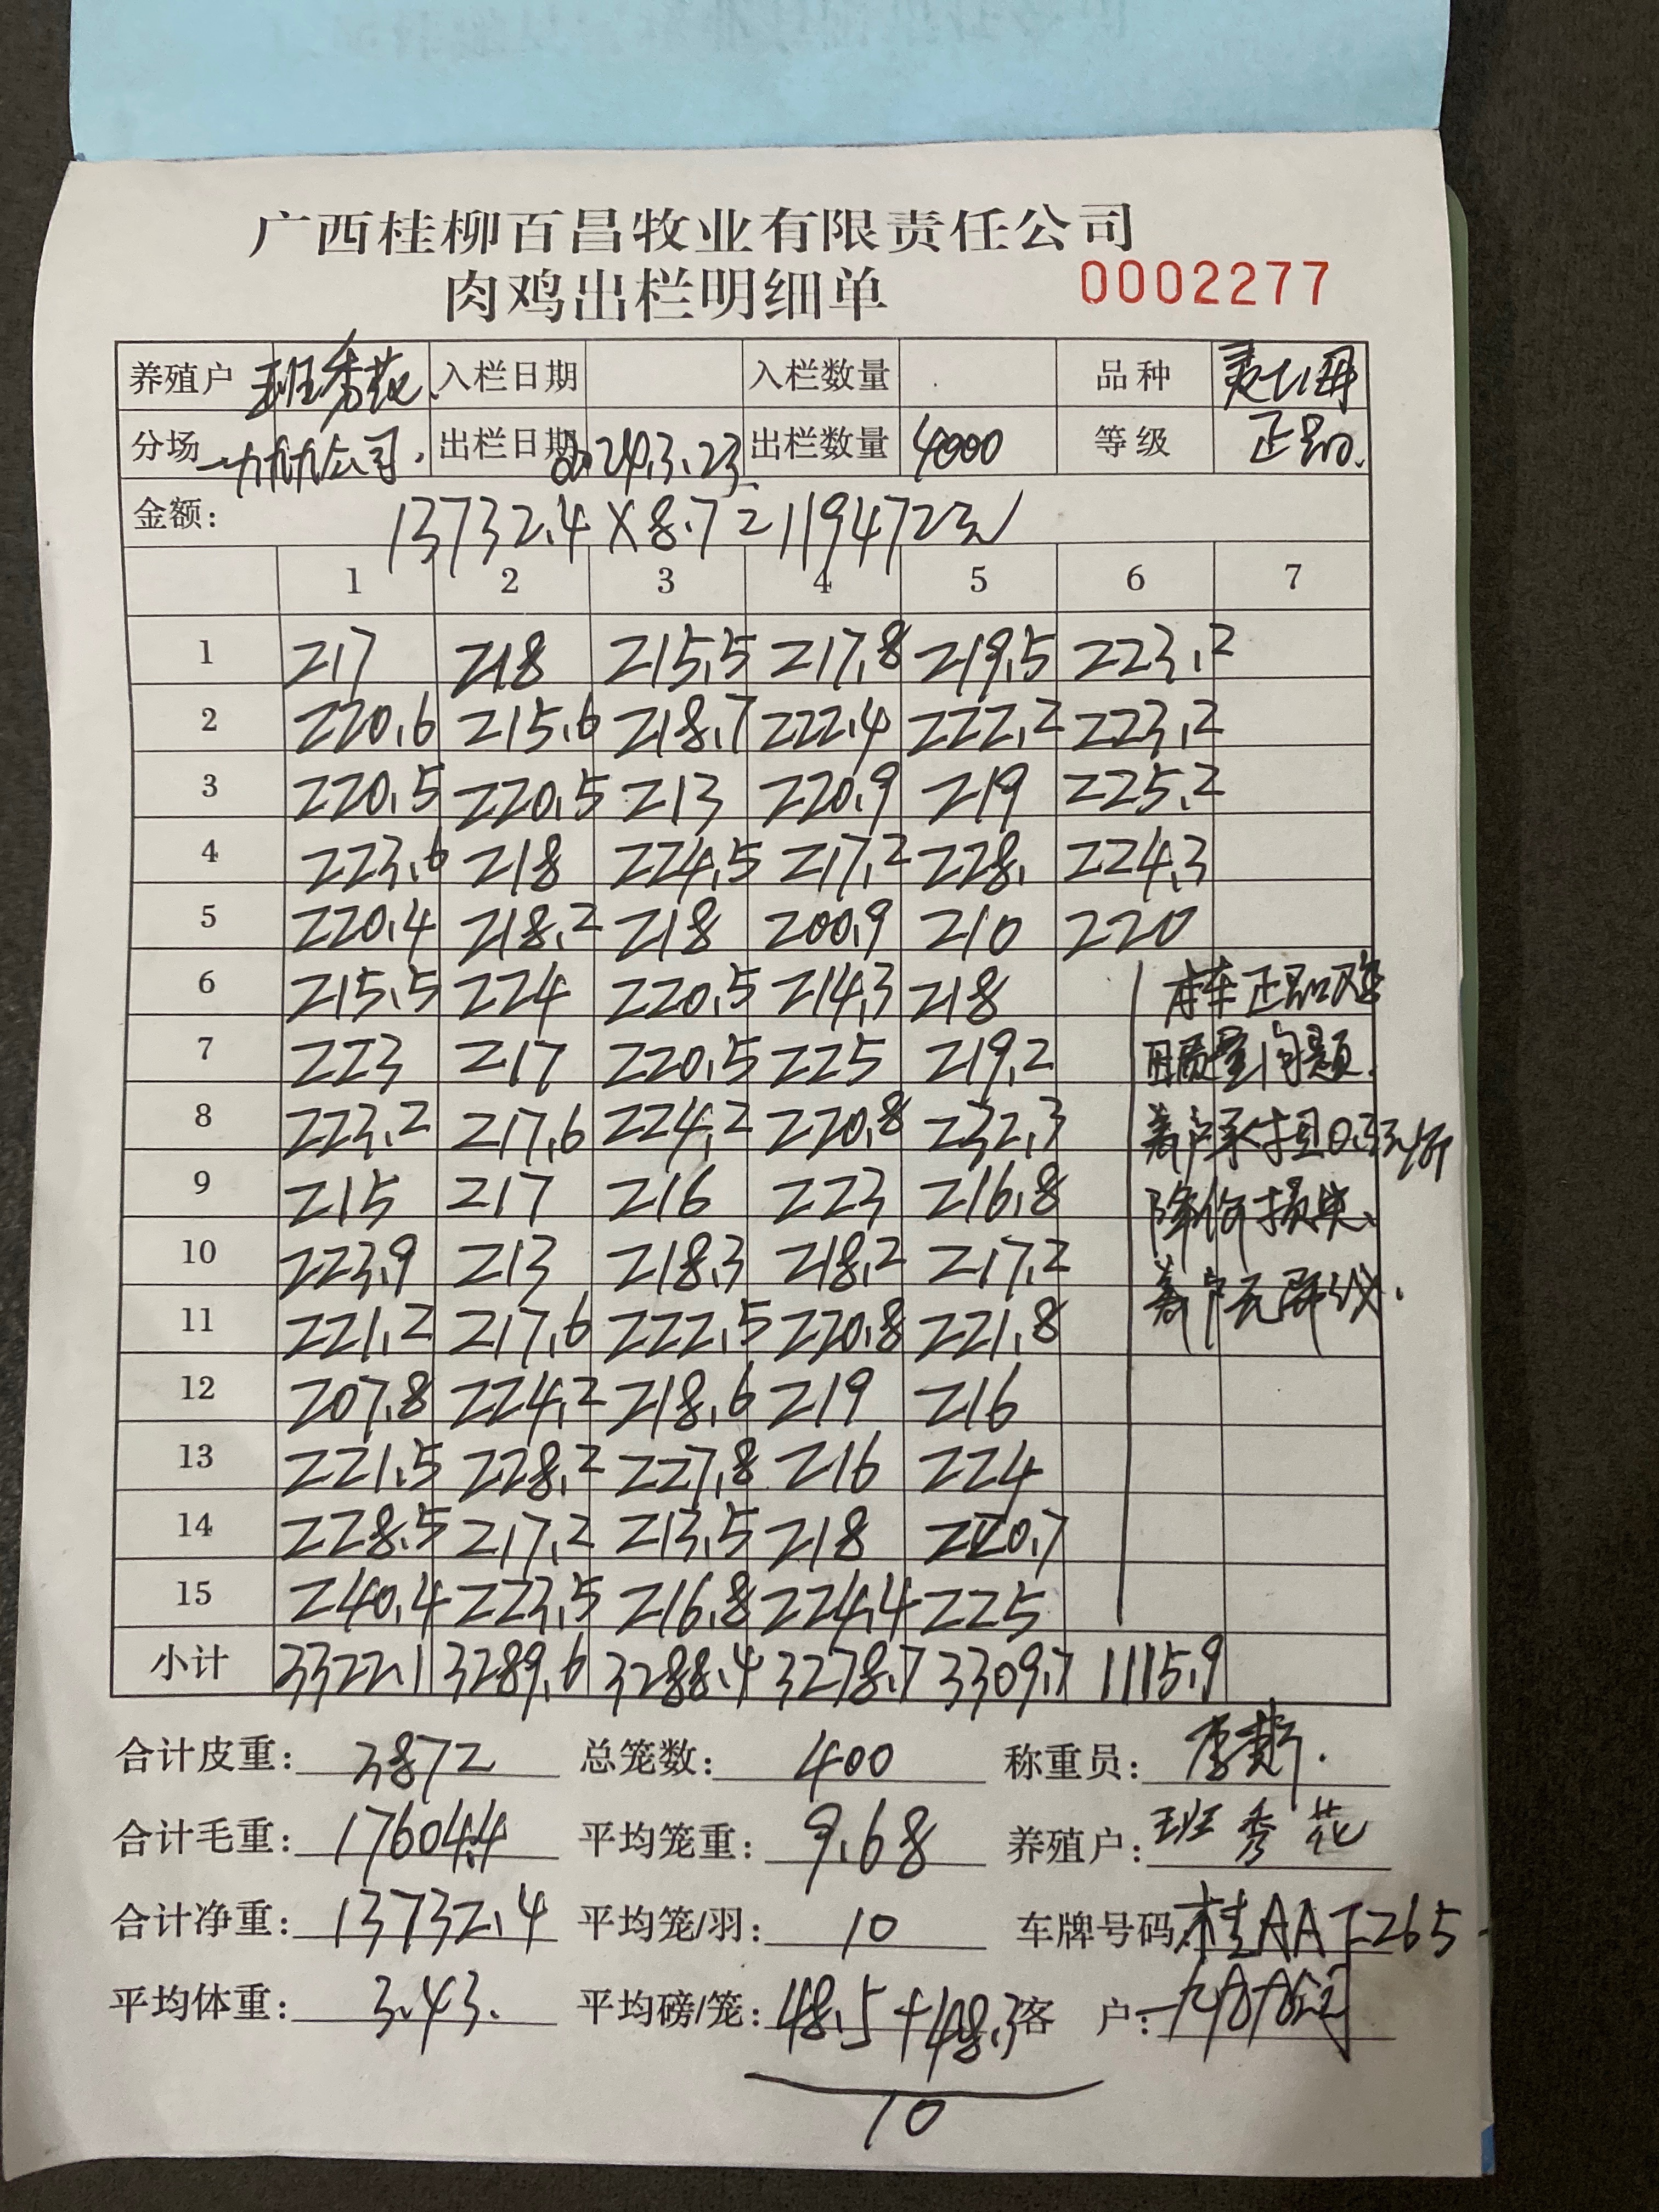 广西桂柳百昌牧业有限责任公司
肉鸡出栏明细单 0002277
养殖户 班秀花 入栏日期 入栏数量 品种
分场 出栏日期 2024.3.23 出栏数量 4000 等级 正品
金额: 13732.4×8.7=119472元
1 2 3 4 5 6 7
1 217 218 215.5 217.8 219.5 223.2
2 220.6 215.6 218.7 222.4 222.2 223.2
3 220.5 220.5 213 220.9 219 225.2
4 223.6 218 224.5 217.2 228. 224.3
5 220.4 218.2 218 200.9 210 220
6 215.5 224 220.5 214.3 218 本车正品鸡
7 223 217 220.5 225 219.2 因质量问题.
8 223.2 217.6 224.2 220.8 232.3 养户承担0.3元/斤
9 215 217 216 223 216.8 降价损失.
10 223.9 213 218.3 218.2 217.2
11 221.2 217.6 222.5 220.8 221.8 养户无异议.
12 207.8 224.2 218.6 219 216
13 221.5 228.2 227.8 216 224
14 228.5 217.2 213.5 218 220.7
15 240.4 223.5 216.8 224.4 225
小计 3322.1 3289.6 3288.4 3278.7 3309.7 1115.9
合计皮重: 3872 总笼数: 400 称重员:
合计毛重: 17604.4 平均笼重: 9.68 养殖户: 班秀花
合计净重: 13732.4 平均笼/羽: 10 车牌号码: 桂AA 265
平均体重: 3.43. 平均磅/笼: 48.5+48.3 客户:
10